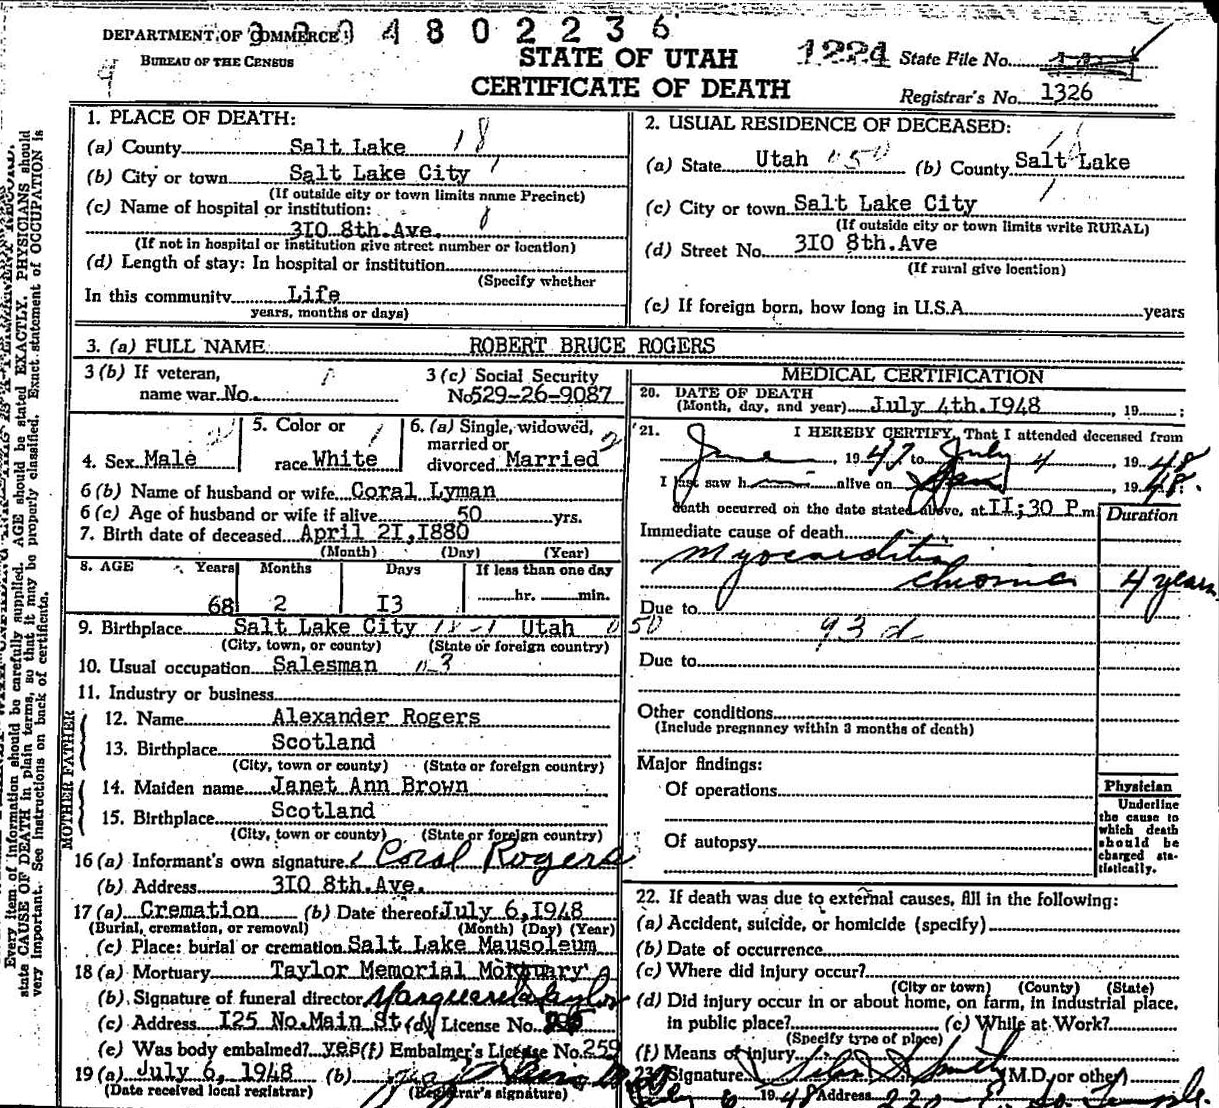 DEPARTMENT OF COMMERCE
BUREAU OF THE CENSUS
4 8 0 2 2 3 6
STATE OF UTAH
CERTIFICATE OF DEATH
1224 State File No.
Registrar's No. 1326
1. PLACE OF DEATH:
(a) County Salt Lake 18
(b) City or town Salt Lake City
(If outside city or town limits name Precinct)
(c) Name of hospital or institution:
3I0 8th.Ave.
(If not in hospital or institution give street number or location)
(d) Length of stay: In hospital or institution
(Specify whether
In this community Life
years, months or days)
2. USUAL RESIDENCE OF DECEASED:
(a) State Utah 050 (b) County Salt Lake
(c) City or town Salt Lake City
(If outside city or town limits write RURAL)
(d) Street No. 3I0 8th.Ave
(If rural give location)
(e) If foreign born, how long in U.S.A. years
3. (a) FULL NAME ROBERT BRUCE ROGERS
3 (b) If veteran,
name war No.
3 (c) Social Security
No 529-26-9087
4. Sex Male
5. Color or
race White
6. (a) Single, widowed,
married or
divorced Married
6 (b) Name of husband or wife Coral Lyman
6 (c) Age of husband or wife if alive 50 yrs.
7. Birth date of deceased April 2I,I880
(Month) (Day) (Year)
8. AGE Years Months Days If less than one day
68 2 I3 hr. min.
9. Birthplace Salt Lake City 18-1 Utah 050
(City, town, or county) (State or foreign country)
10. Usual occupation Salesman
11. Industry or business
FATHER
12. Name Alexander Rogers
13. Birthplace Scotland
(City, town or county) (State or foreign country)
MOTHER
14. Maiden name Janet Ann Brown
15. Birthplace Scotland
(City, town or county) (State or foreign country)
16 (a) Informant's own signature Coral Rogers
(b) Address 3I0 8th.Ave.
17 (a) Cremation (b) Date thereof July 6,I948
(Burial, cremation, or removal) (Month) (Day) (Year)
(c) Place: burial or cremation Salt Lake Mausoleum
18 (a) Mortuary Taylor Memorial Mortuary
(b) Signature of funeral director Taylor
(c) Address I25 No.Main St (d) License No.
(e) Was body embalmed? yes (f) Embalmer's License No. 259
19 (a) July 6, I948 (b)
(Date received local registrar) (Registrar's signature)
MEDICAL CERTIFICATION
20. DATE OF DEATH
(Month, day, and year) July 4th.I948, 19 ;
21. I HEREBY CERTIFY, That I attended deceased from
June, 1947 to July 4, 1948
I last saw him alive on, 1948.
death occurred on the date stated above, at II;30 P.m.
Duration
Immediate cause of death
Myocarditis
chronic 4 years
Due to
93 d
Due to
Other conditions
(Include pregnancy within 3 months of death)
Major findings:
Of operations
Of autopsy
Physician
Underline
the cause to
which death
should be
charged sta-
tistically.
22. If death was due to external causes, fill in the following:
(a) Accident, suicide, or homicide (specify)
(b) Date of occurrence
(c) Where did injury occur?
(City or town) (County) (State)
(d) Did injury occur in or about home, on farm, in industrial place,
in public place? (e) While at Work?
(Specify type of place)
(f) Means of injury
23. Signature Silas S Smith (M.D. or other)
July 6 1948 Address So Temple
Every item of information should be carefully supplied. AGE should be stated EXACTLY. PHYSICIANS should
state CAUSE OF DEATH in plain terms, so that it may be properly classified. Exact statement of OCCUPATION is
very important. See instructions on back of certificate.